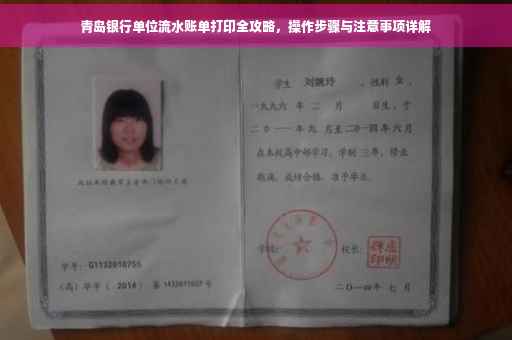 青岛银行单位流水账单打印全攻略，操作步骤与注意事项详解
学生 刘婉玲 ，性别 女 ，
一九九六 年 二 月 日生，于
二〇一一年九 月至二〇一四年六月
在本校高中部学习，学制 三年，修业
期满，成绩合格，准予毕业。
学校： 校长：
学号： G1132010755
（高）毕字（ 2014 ）第 1432011027 号
二〇一四年 七 月